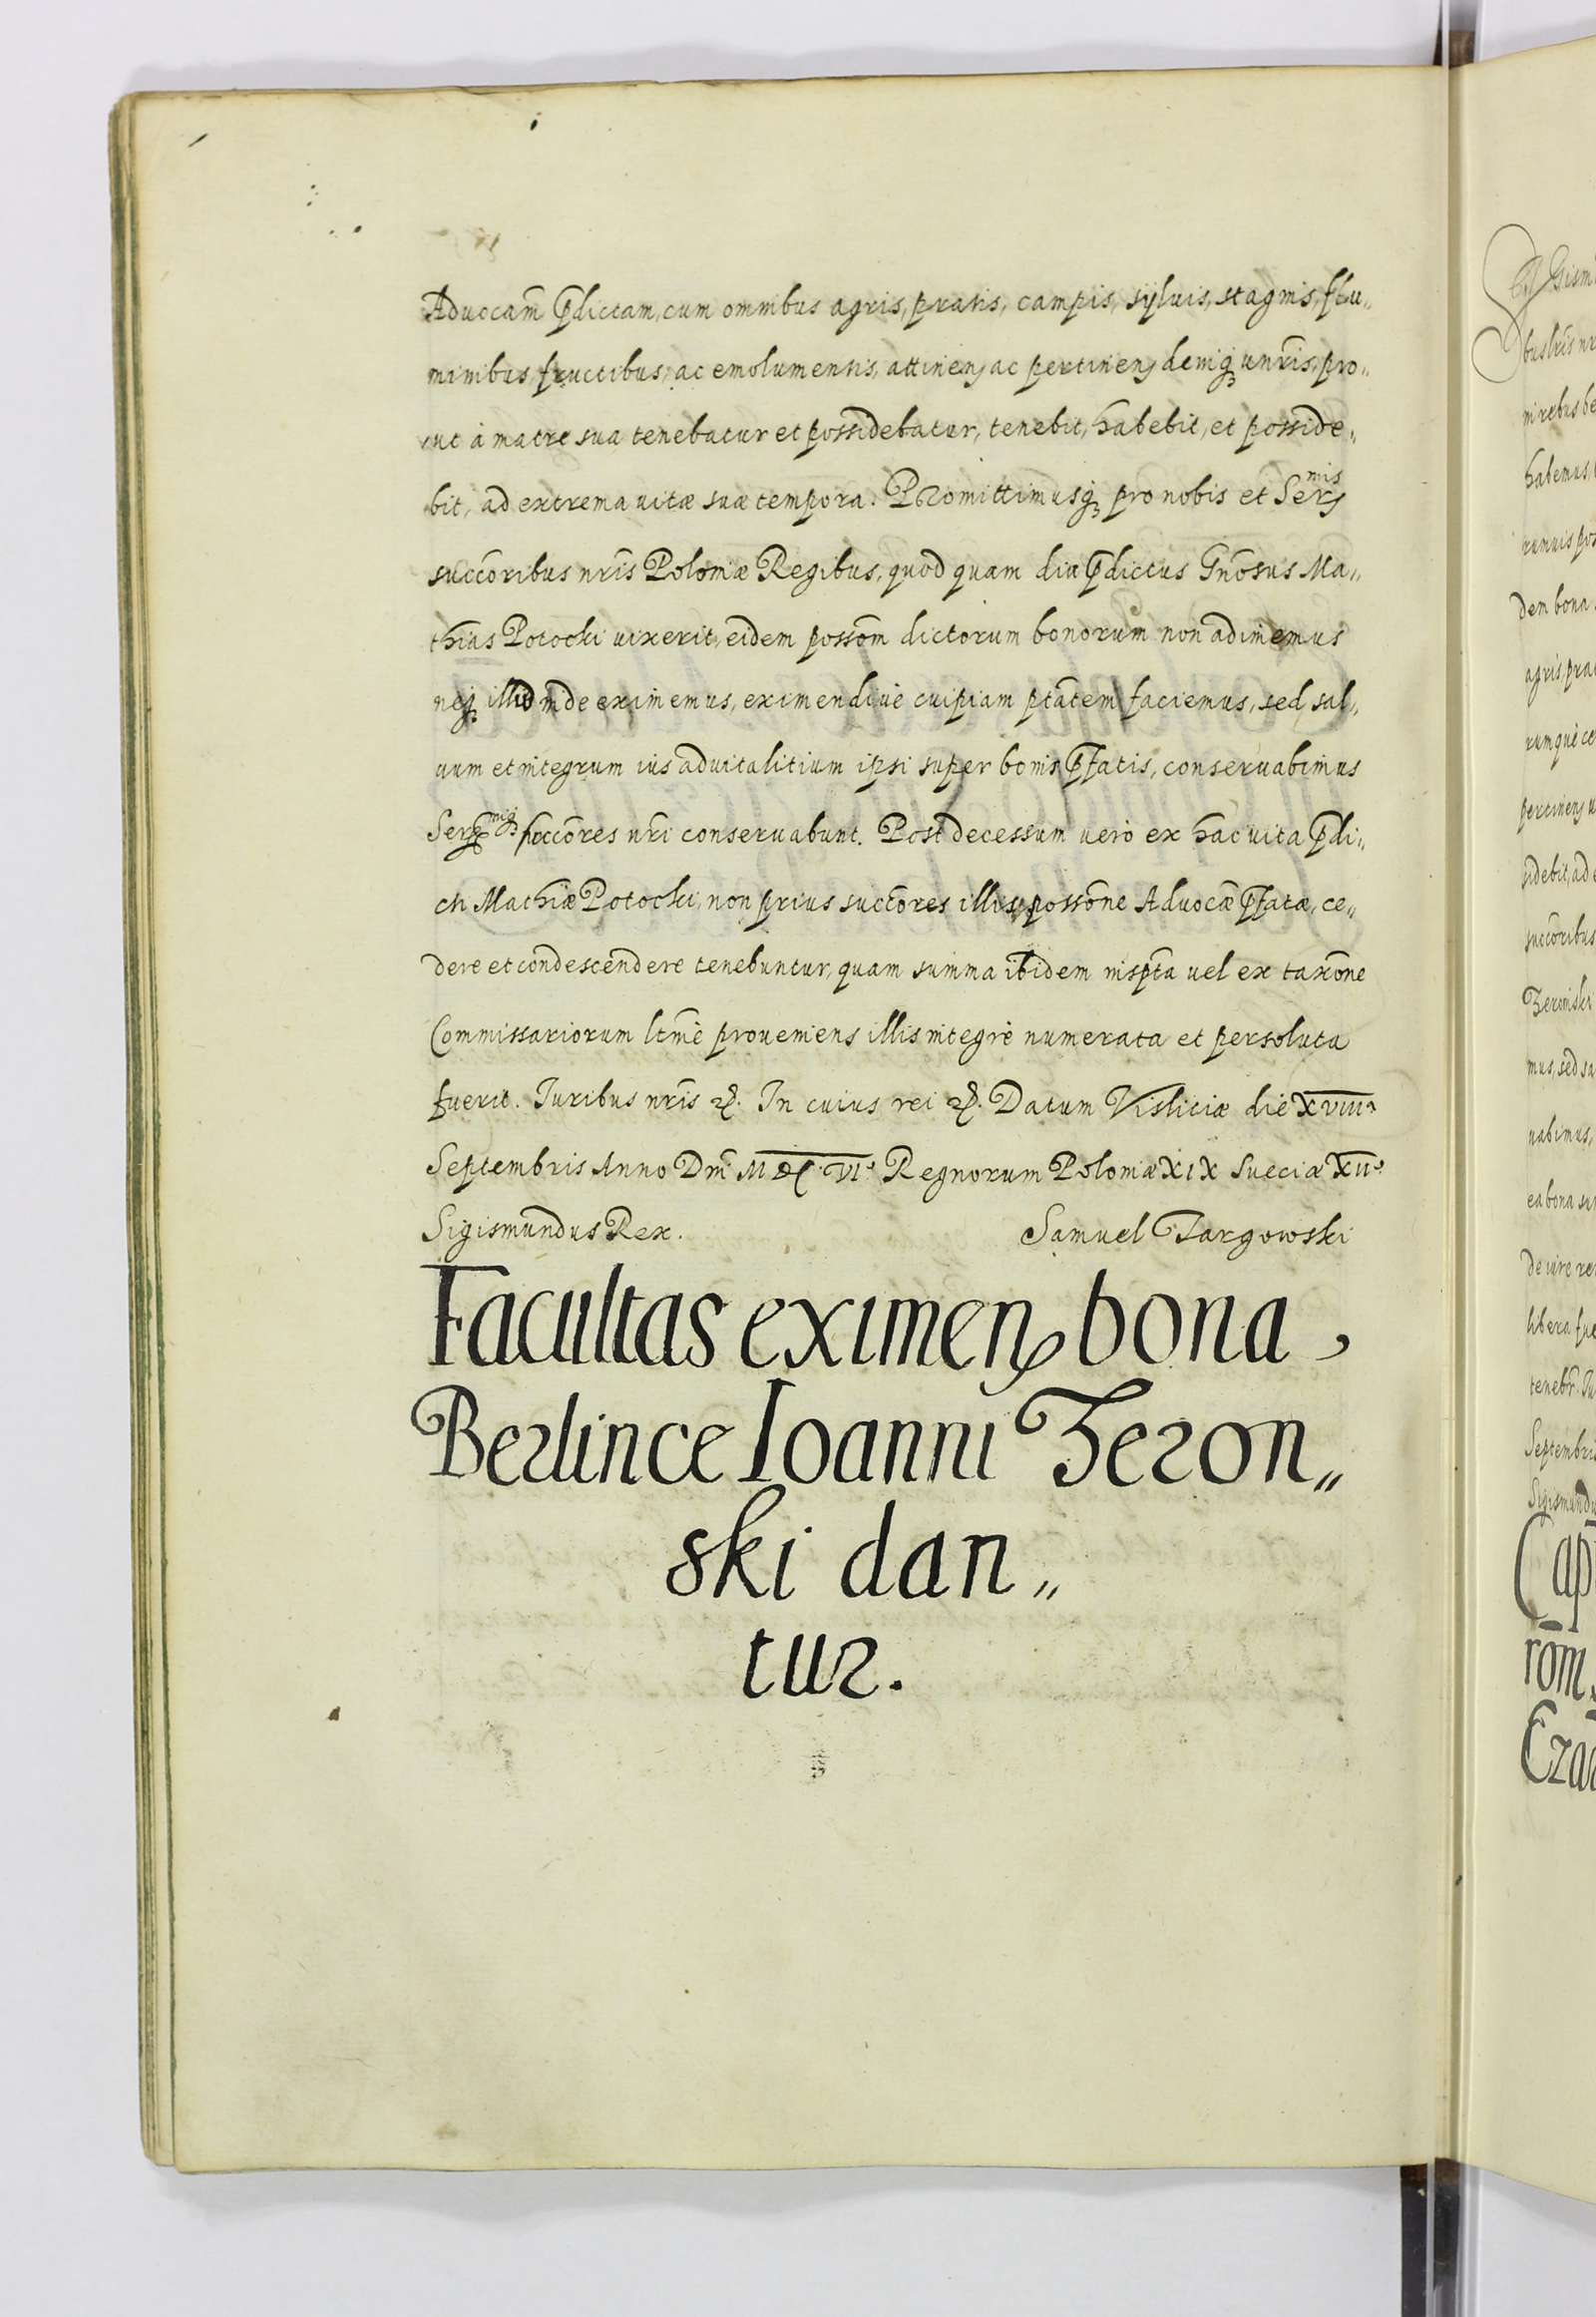 Advocam̄ p̄dictam, cum omnibus agris, pratis, campis, sylvis, stagnis, flu„
minibus, fructibus, ac emolumentis, attineñ ac pertineñ deniq₃ unr̄is, pro„
ut à matre sua tenebatur et possidebatur, tenebit, habebit, et posside„
bit, ad extrema vitæ suæ tempora. Promittimusq₃ pro nobis et Sermis
succōribus nr̄is Poloniæ Regibus, quod quam diu p̄dictus Gn̄osus Ma„
thias Potocki vixerit, eidem possōm dictorum bonorum non adimemus
neq₃ illū inde eximemus, eximendive cuipiam ptātem faciemus, sed sal„
vum et integrum ius advitalitium ipsi super bonis p̄fatis, conservabimus
Sermiq₃ succōres nr̄i conservabunt. Post decessum vero ex hac vita p̄di„
cti Mathiæ Potocki, non prius succōres illius possōne Advocāe p̄fatæ, ce„
dere et condescendere tenebuntur, quam summa ibidem inspt̄a vel ex taxōne
Commissariorum ltm̄e proveniens illis integre numerata et persoluta
fuerit. Iuribus nr̄is etc. In cuius rei etc. Datum Visliciæ die XVIII
Septembris Anno Dm̄ MDCVI. Regnorum Poloniæ XIX Sueciæ XII.
Sigismundus Rex. Samuel Targowski
Facultas eximeñ bona
Berlince Ioanni Zeron„
ski dan„
tur.